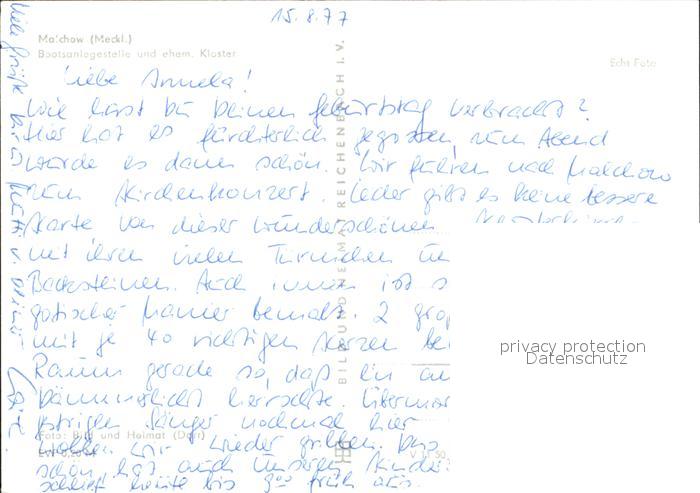 15.8.77
Malchow (Meckl.)
Bootsanlegestelle und ehem. Kloster
Echt Foto
Liebe Annela!
Wie hast Du Deinen Geburtstag verbracht?
Hier hat es fürchterlich gegossen, zum Abend
wurde es dann schön. Wir fuhren nach Malchow
zum Kirchenkonzert. Leider gibt es keine bessere
Karte von dieser wunderschönen
mit ihren vielen Türmchen un
Backsteinen. Auch innen ist s
gotischer Manier bemalt. 2 gro
mit je 40 richtigen Kerzen be
Raum gerade so, daß ein an
dämmerlicht herrschte. Übermor
gestrigen Sänger nochmal hier
wollen wir wieder grillen. Das
schön hat auch unseren Kinder
schlief heute bis 9 früh aus.
Viele Grüße
BILD UND HEIMAT REICHENBACH I. V.
Foto: Bild und Heimat (Dorr)
V 11 50
privacy protection
Datenschutz